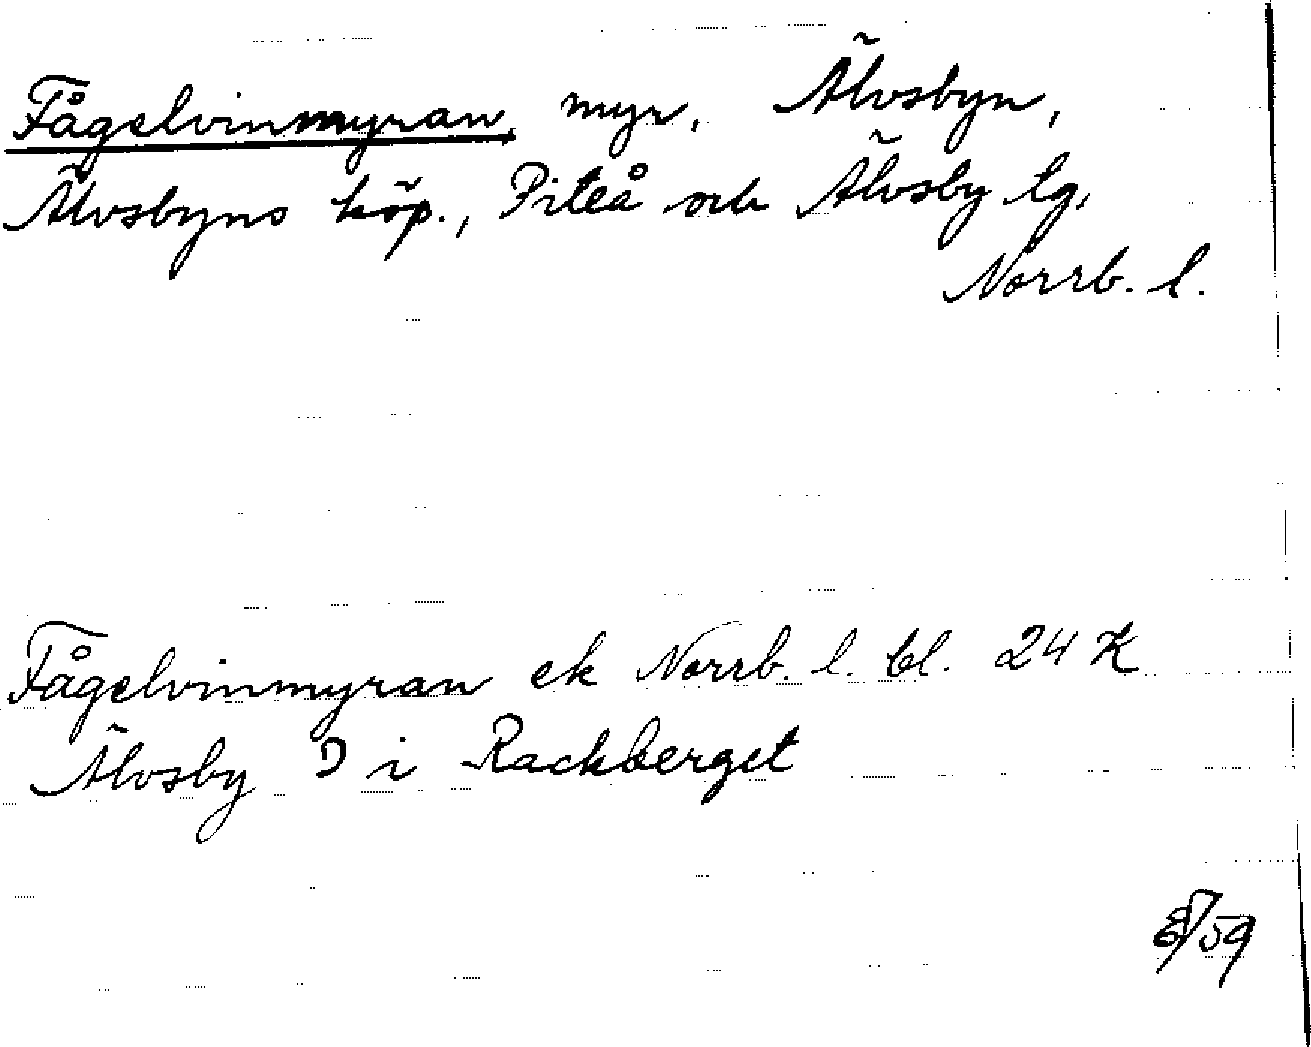 Fågelvinmyran, myr, Älvsbyn,
Älvsbyns köp., Piteå och Älvsby tg,
Norrb. l.
Fågelvinmyran ek Norrb. l. bl. 24 K
Älvsby D i Rackberget